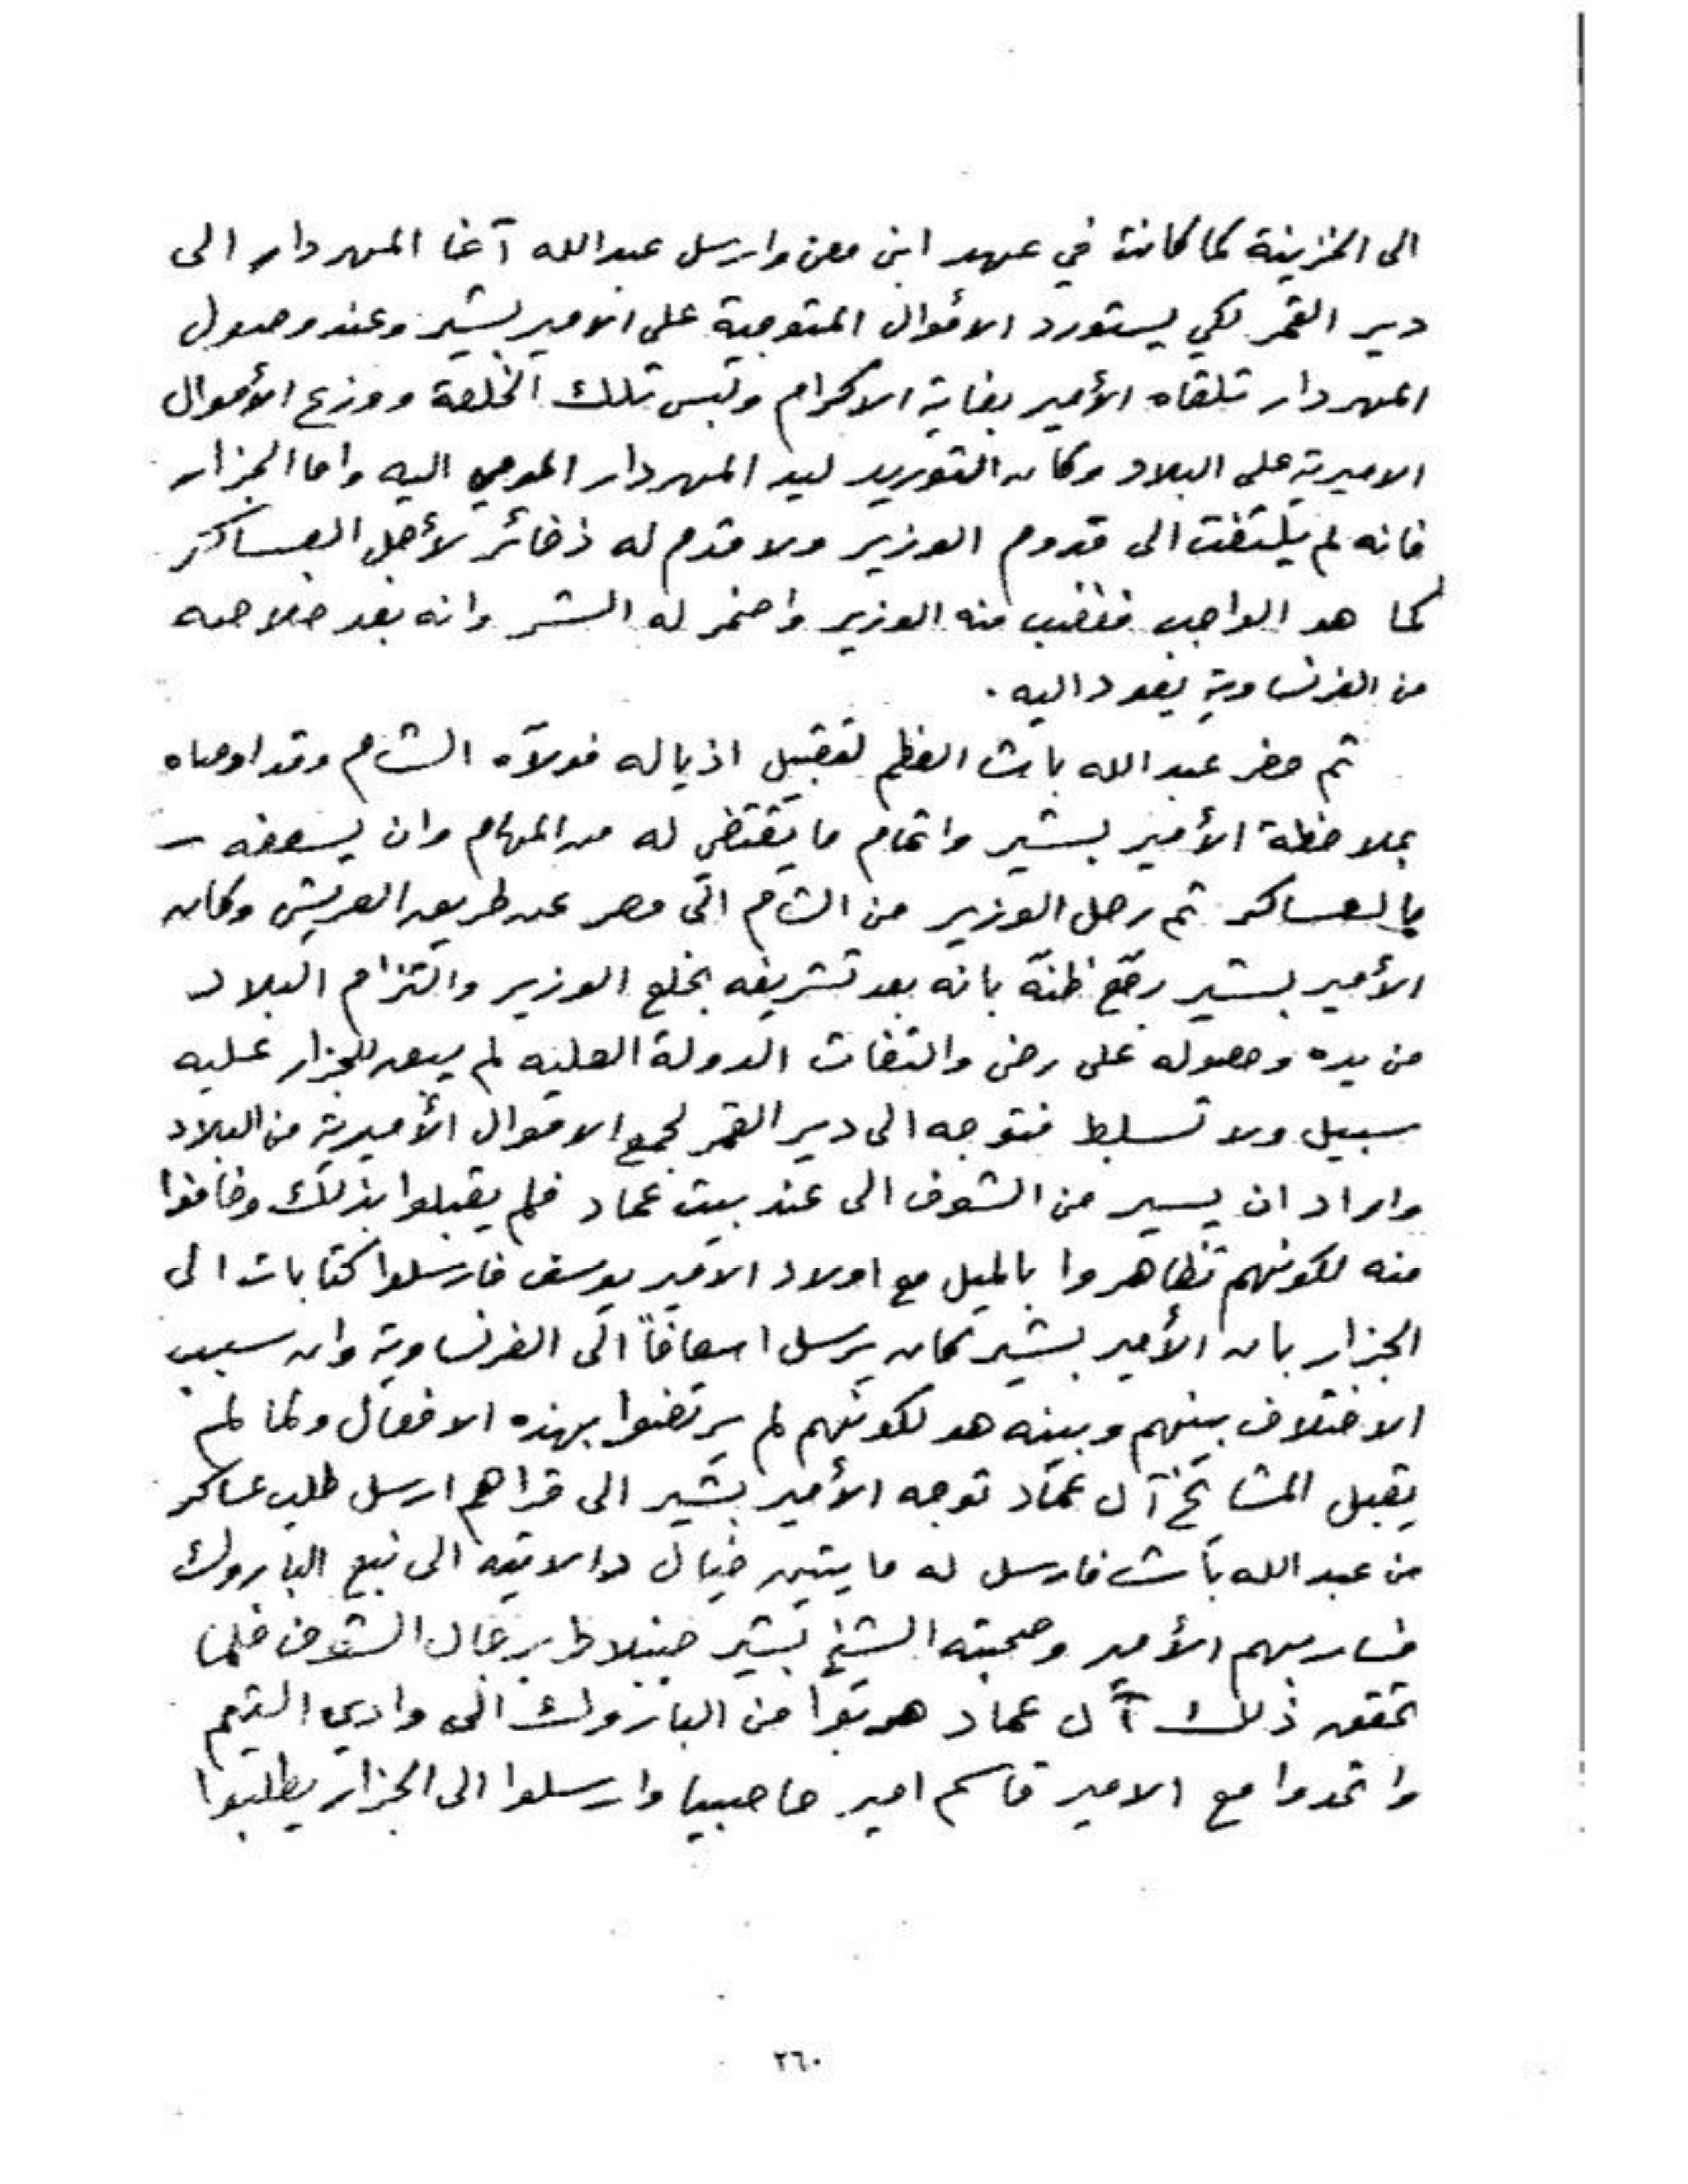 الى الخزينة كما كانت في عهد ابن معن وارسل عبدالله آغا المهردار الى
دير القمر لكي يستورد الاموال المتوجبة على الامير بشير وعند وصول
المهردار تلقاه الأمير بغاية الاكرام ولبس تلك الخلعة ووزع الأموال
الاميرية على البلاد وكان التوريد ليد المهردار المومي اليه واما الجزار
فانه لم يلتفت الى قدوم الوزير ولا قدم له ذخائر لأجل العساكر
كما هو الواجب فغضب منه الوزير واضمر له الشر وانه بعد خلاصه
من الفرنساوية يعود اليه .
ثم حضر عبد الله باشا العظم لتقبيل اذياله فولآه الشام وقد اوصاه
بملاحظة الأمير بشير واتمام ما يقتضي له من المهام وان يسعفه
بالعساكر ثم رحل الوزير من الشام الى مصر عن طريق العريش وكان
الأمير بشير رجّع ظنّه بانه بعد تشريفه بخلع الوزير والتزام البلاد
من يده وحصوله على رضى والتفات الدولة العليه لم يبق للجزار عليه
سبيل ولا تسلط فتوجه الى دير القمر لجمع الاموال الأميرية من البلاد
واراد ان يسير من الشوف الى عند بيت عماد فلم يقبلوا بذلك وخافوا
منه لكونهم تظاهروا بالميل مع اولاد الامير يوسف فارسلوا كتابات الى
الجزار بان الأمير بشير كان يرسل اسعافاً الى الفرنساوية وان سبب
الاختلاف بينهم وبينه هو لكونهم لم يرتضوا بهذه الافعال ولما لم
يقبل المشايخ آل عمّاد توجه الأمير بشير الى قراهم ارسل طلب عساكر
من عبد الله باشا فارسل له مايتين خيال دالاتيه الى نبع الباروك
فسار بهم الأمير وصحبته الشيخ بشير جنبلاط برجال الشوف فلما
تحقق ذلك آل عماد هربوا من الباروك الى وادي التيم
واتحدوا مع الامير قاسم امير حاصبيا وارسلوا الى الجزار يطلبوا
٢٦٠